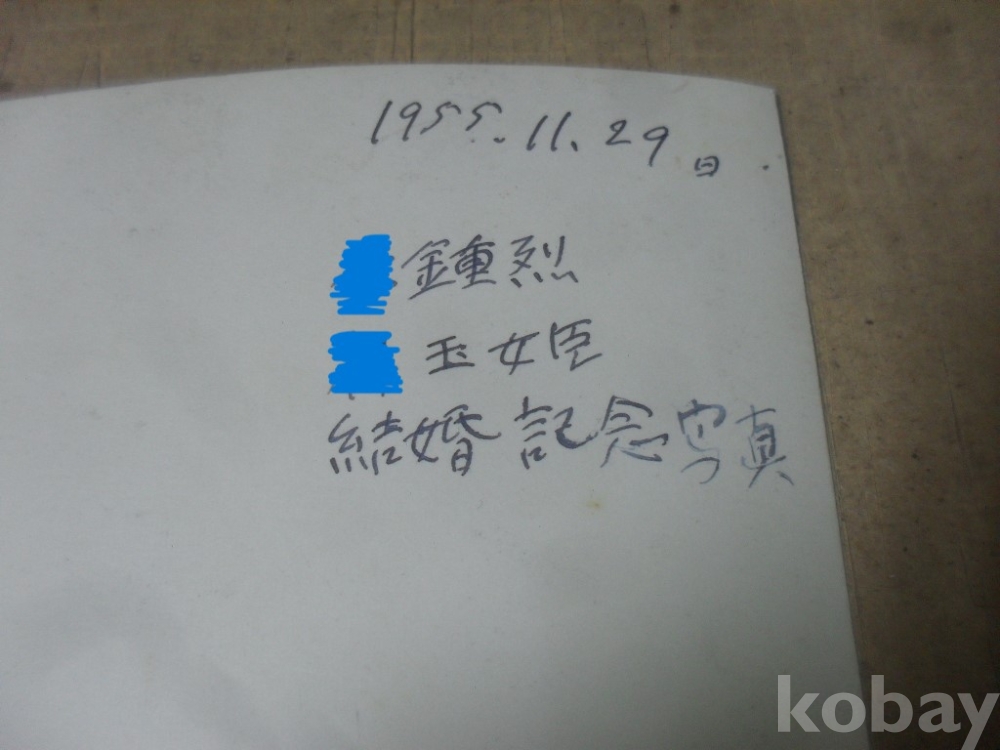 1955.11.29日.
鍾烈
玉姬
結婚記念写真
kobay